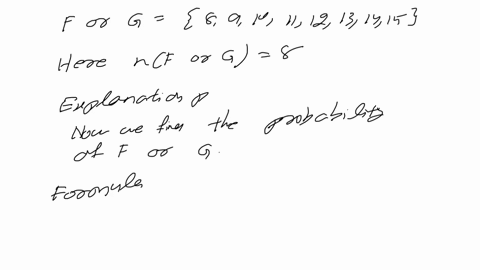 F or G = {8, 9, 10, 11, 12, 13, 14, 15}
Here n(F or G) = 8
Explanation
Now we find the probability
of F or G.
Formula